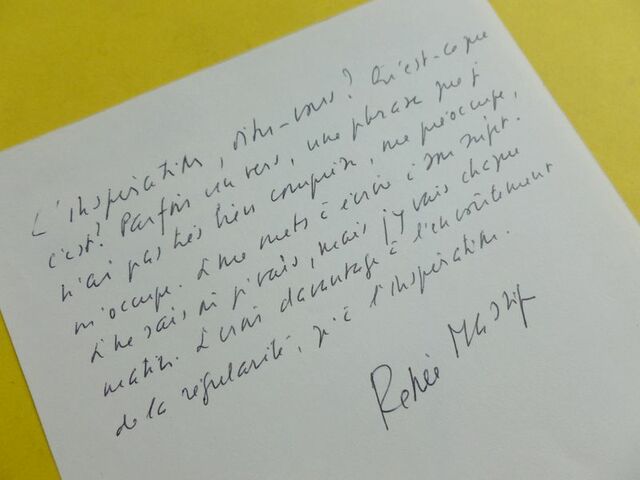 L'inspiration, dites-vous? Qu'est-ce que
c'est? Parfois un vers, une phrase que je
n'ai pas très bien comprise, me préoccupe,
m'occupe. Je me mets à écrire à son sujet.
Je ne sais où je vais, mais j'y vais chaque
matin. Je crois davantage à l'envoûtement
de la régularité, qu'à l'inspiration.
Renée